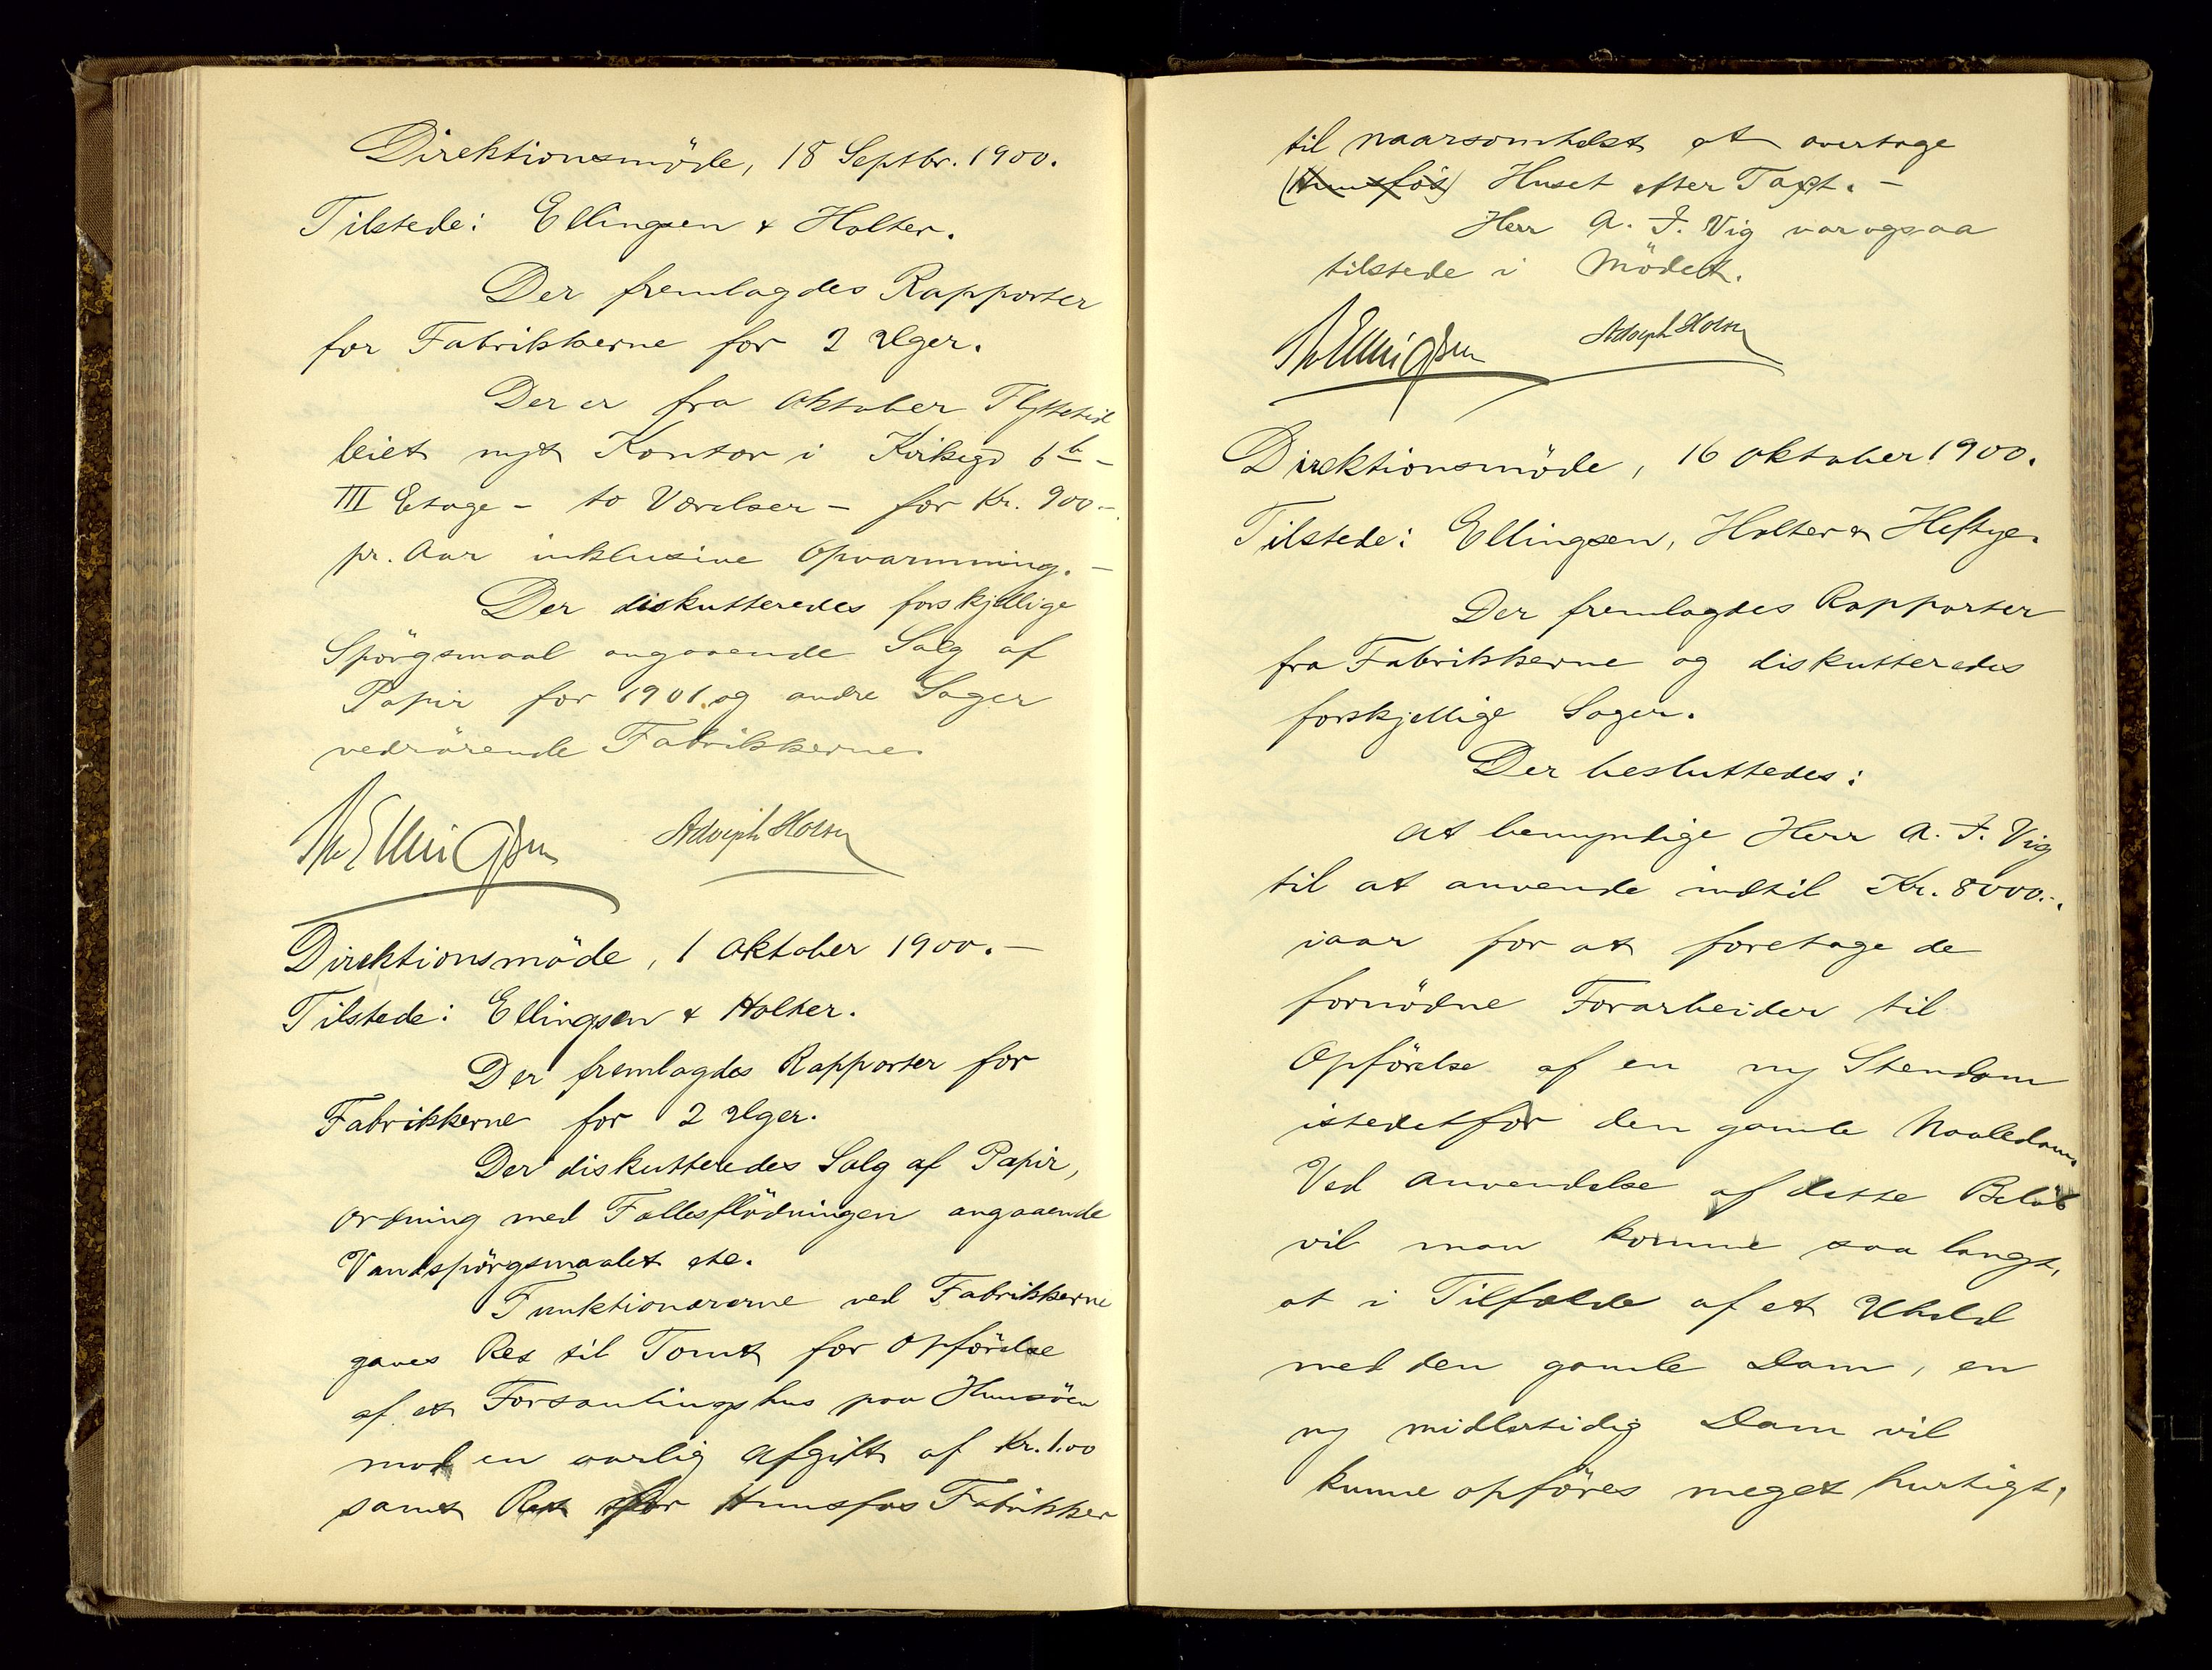 Direktionsmöde, 18 Septbr. 1900.
Tilstede: Ellingsen & Holter.
Der fremlagdes Rapporter
for Fabrikkerne for 2 Uger.
Der er fra Oktober Flyttetid
leiet nyt Kontor i Kirkegd 6b -
III Etage - to Værelser - for Kr. 900.-
pr. Aar inklusive Opvarmning. -
Der diskutteredes forskjellige
Spörgsmaal angaaende Salg af
Papir for 1901 og andre Sager
vedrörende Fabrikkerne.
Th Ellingsen Adolph Holter
Direktionsmöde, 1 Oktober 1900. -
Tilstede: Ellingsen & Holter.
Der fremlagdes Rapporter for
Fabrikkerne for 2 Uger.
Der diskutteredes Salg af Papir,
Ordning med Fællesflödningen angaaende
Vandspörgsmaalet etc.
Funktionærerne ved Fabrikkerne
gaves Ret til Tomt for Opförelse
af et Forsamlingshus paa Hunsöen
mod en aarlig Afgift af Kr. 1.00
samt Ret for Hunsfos Fabrikker
til naarsomhelst at overtage
(Hunsfos) Huset efter Taxt. -
Herr A. I. Vig var ogsaa
tilstede i Mödet.
Th Ellingsen Adolph Holter
Direktionsmöde, 16 Oktober 1900.
Tilstede: Ellingsen, Holter & Heftye.
Der fremlagdes Rapporter
fra Fabrikkerne og diskutteredes
forskjellige Sager.
Der besluttedes:
At bemyndige Herr A. I. Vig
til at anvende indtil Kr. 8000.-
iaar for at foretage de
fornödne Forarbeider til
Opförelse af en ny Stendam
istedetfor den gamle Naaledam.
Ved Anvendelse af dette Belöb
vil man komme saa langt,
at i Tilfælde af et Uheld
med den gamle Dam, en
ny midlertidig Dam vil
kunne opföres meget hurtigt,